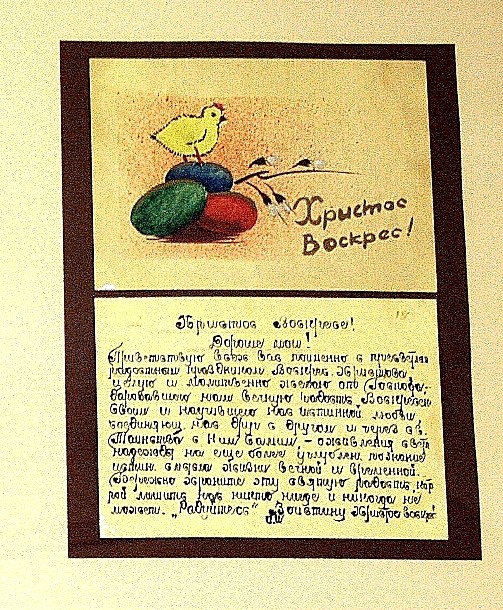 Христос
Воскрес!
Христос Воскресе!
Дорогие мои!
Приветствую всех вас поименно с пресветлым
радостным праздником Воскрес. Христова
целую и молитвенно желаю от Господа,
даровавшего нам вечную радость Воскресен
Своим и научившего нас истинной любви,
соединяющ. нас друг с другом и через св.
Таинства с Ним Самим, – оживления света
надежды на еще более углублен. познание
истин. смысла жизни вечной и временной.
Бережно храните эту святую радость, кор
рой лишить нас никто нигде и никогда не
может. „Радуйтесь" Воистину Христос воскре!